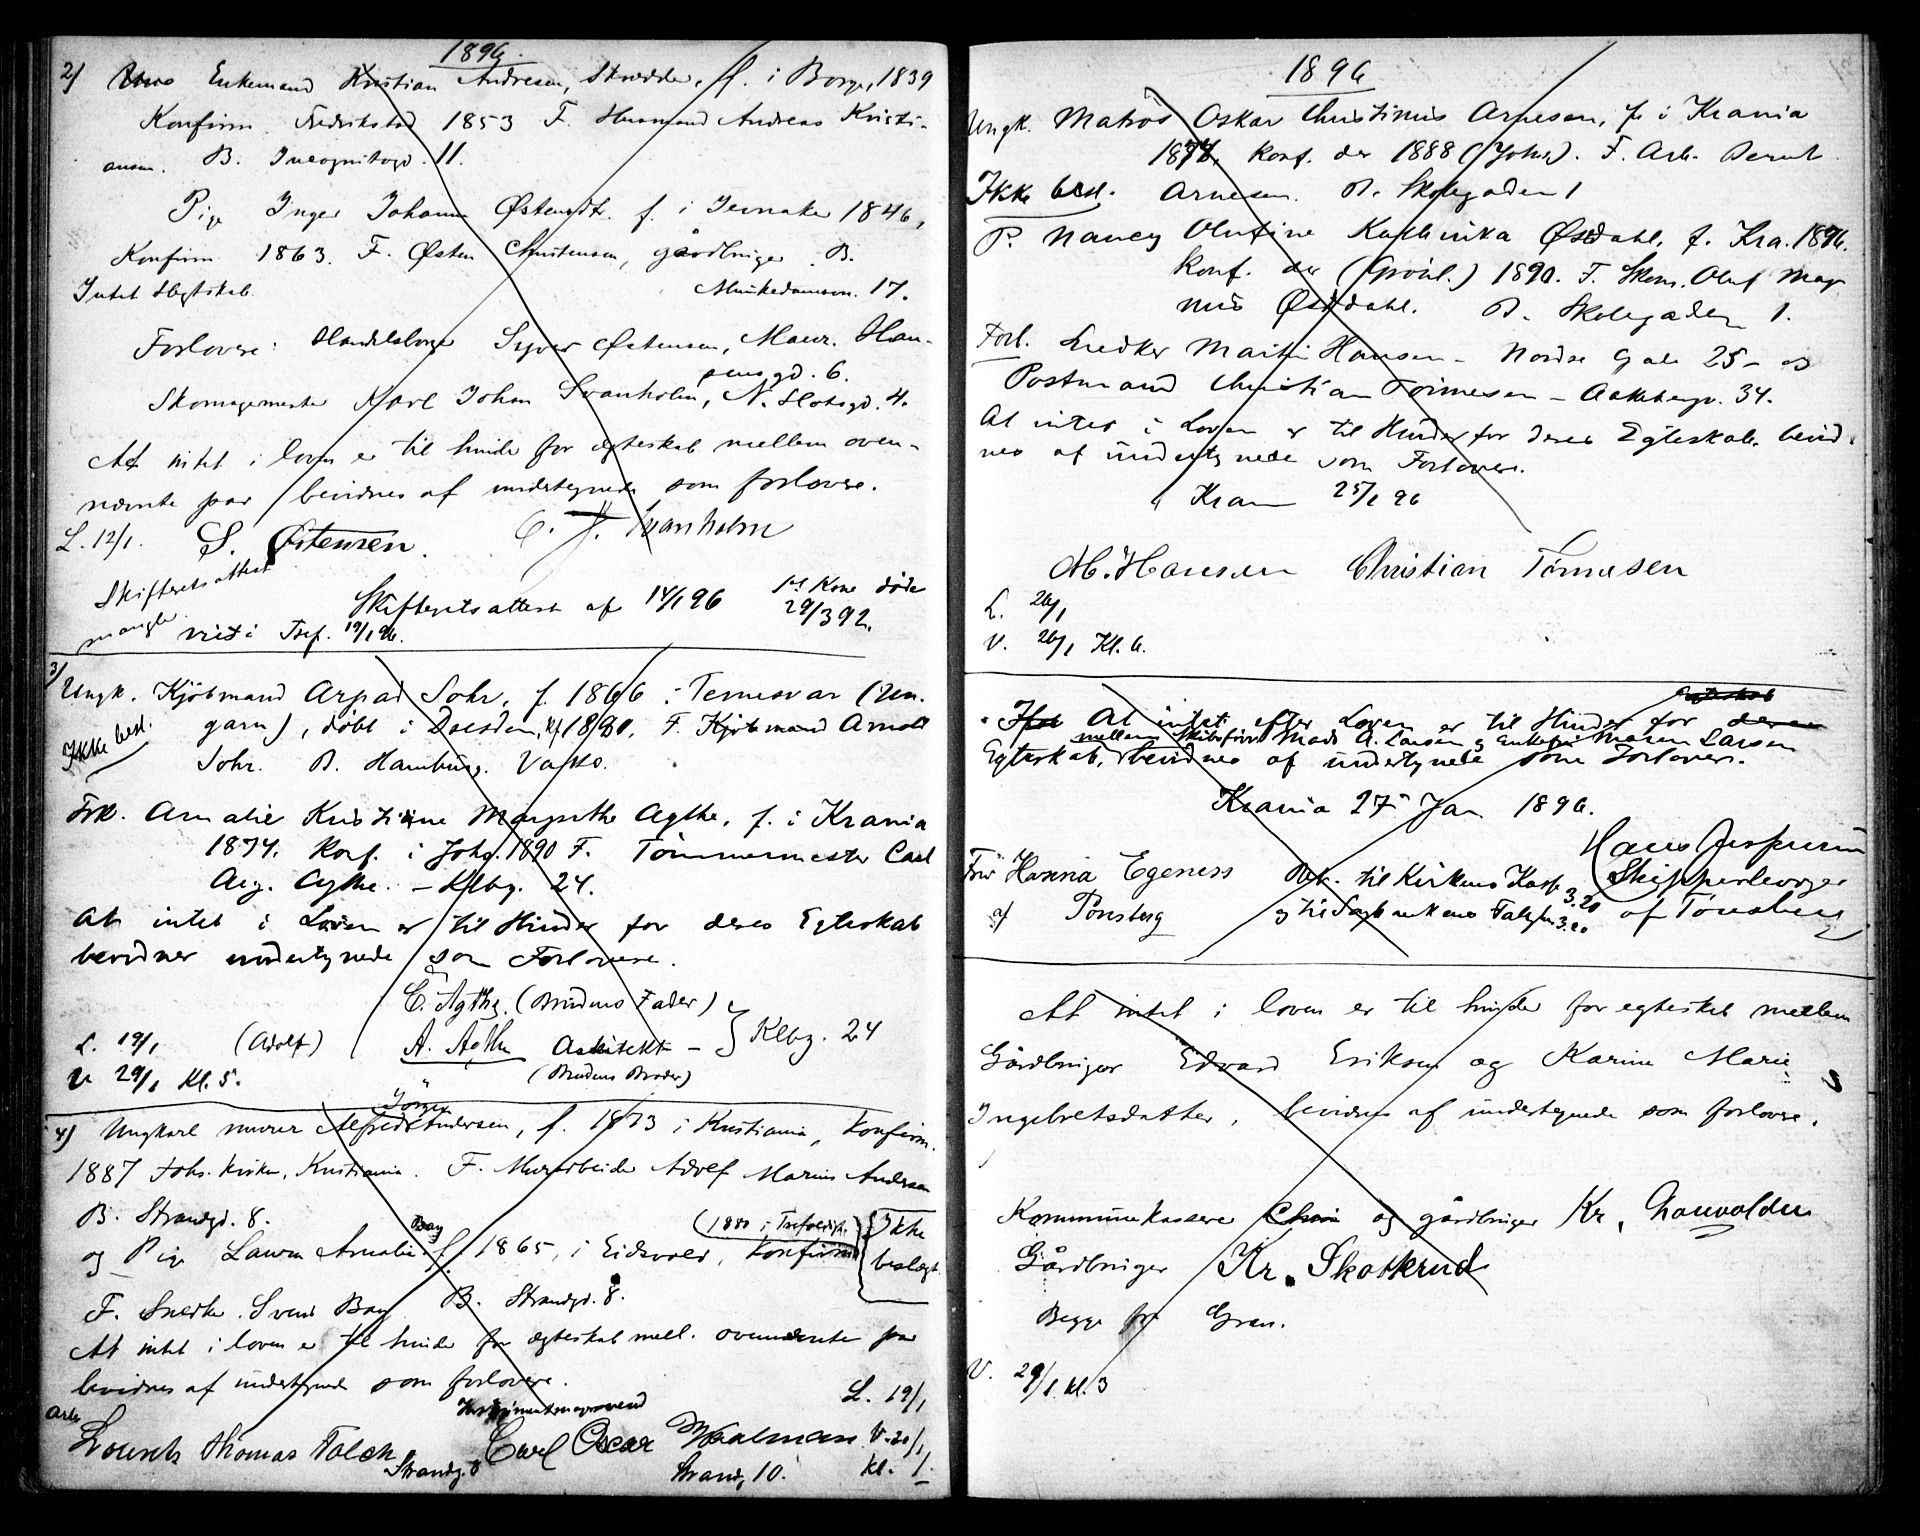 1896.
2) Enkemand Kristian Andresen, Skrædder, f. i Borge, 1839
Konfirm. Fredrikstad 1853 F. Husmand Andreas Kristi-
ansen. B. Incognitogd. 11.
Pige Inger Johanne Østensdtr. f. i Jevnaker 1846,
Konfirm 1863. F. Østen Christensen, gårdbruger. B.
Intet slegtskab. Munkedamsv. 17.
Forlovere: Handelsborger Syver Østensen, Maur. Han-
sensgd. 6.
Skomagermester Karl Johan Svanholm, N. Slotsgd. 4.
At intet i loven er til hinder for ægteskab mellem oven-
nævnte par bevidnes af undertegnede som forlovere.
L. 12/1. S. Østensen. C. J. Svanholm
Skifteretsattest
mangler
Skifteretsattest af 14/1 96 1st Kone døde
29/3 92.
viet i Tref. 19/1 96.
3) Ungk. Kjöbmand Arpad Sohr, f. 1866 i Temesvar (Un-
garn), döbt i Dresden, kf. 1880. F. Kjöbmand Arnold
Ikke besl.
Sohr. B. Hamburg.
Frk. Amalie Kristine Margrethe Agthe, f. i Krania
1874. Konf. i Joh. 1890 F. Tömmermester Carl
Aug. Agthe. - Klbg. 24.
At intet i Loven er til Hinder for deres Egteskab
bevidner undertegnede som Forlovere.
C. Agthe. (Brudens Fader)
L. 19/1 (Adolf) A. Agthe Arkitekt - } Klbg. 24
V. 29/1 Kl. 5. (Brudens Broder)
4) Ungkarl murer Alfred Andersen, f. 1873 i Kristiania, Konfirm.
1887 Johs. kirken, Kristiania. F. Murarbeider Adolf Marius Andersen
B. Strandgd. 8.
(1880 i Trefoldigh.) Ikke
beslegt.
og Pige Laura Amalie Bay f. 1865, i Eidsvold, Konfirm
F. Snedker Svend Bay B. Strandgd. 8.
At intet i loven er til hinder for ægteskab mell. ovennævnte par
bevidnes af undertegnede som forlovere.
L. 19/1
Arb.
Lourits Thomas Falck Carl Oscar V. 20/1
Strandg. 8 Strandg 10. Kl. 1.
1896
Ungk. Matros Oskar Christinius Arnesen, f. i Krania
1874, Konf. der 1888 (Johs). F. Arb. Bernt
Ikke besl. Arnesen. B. Skolegaden 1
P. Nancy Olufine Kathinka Østdahl, f. Kra. 1876.
Konf. der (Grönl.) 1890. F. Skom. Oluf Mag-
nus Østdahl. B. Skolegaden 1.
Forl. Snedker Martin Hansen - Nordre Gade 25 - og
Postmand Christian Tönnesen - Aakebergv. 34.
At intet i Loven er til Hinder for deres Egteskab bevid-
nes af undertegnede som Forlovere.
Krania 25/1 96
M. Hansen Christian Tönnesen
L. 26/1
V. 26/1 Kl. 6.
At intet efter Loven er til Hinder for
mellem Skibsförer Mads A. Larsen og Enkefru Maren Larsen
Egteskab, bevidnes af undertegnede som Forlovere.
Krania 27 Jan 1896.
Fru Hanna Egeness Bet. til Kirkens Kasse 3.20 Hans Jespersen
Skipperborger
af Tönsberg af Tönsberg
At intet i loven er til hinder for egteskab mellem
Gårdbruger Edvard Eriksen og Karine Marie
Ingebretsdatter, bevidnes af undertegnede som forlovere.
Kommunekasserer og gårdbruger Kr.
Gårdbruger Kr. Skatkrud
Begge fra Gran.
V. 29/1. kl. 3